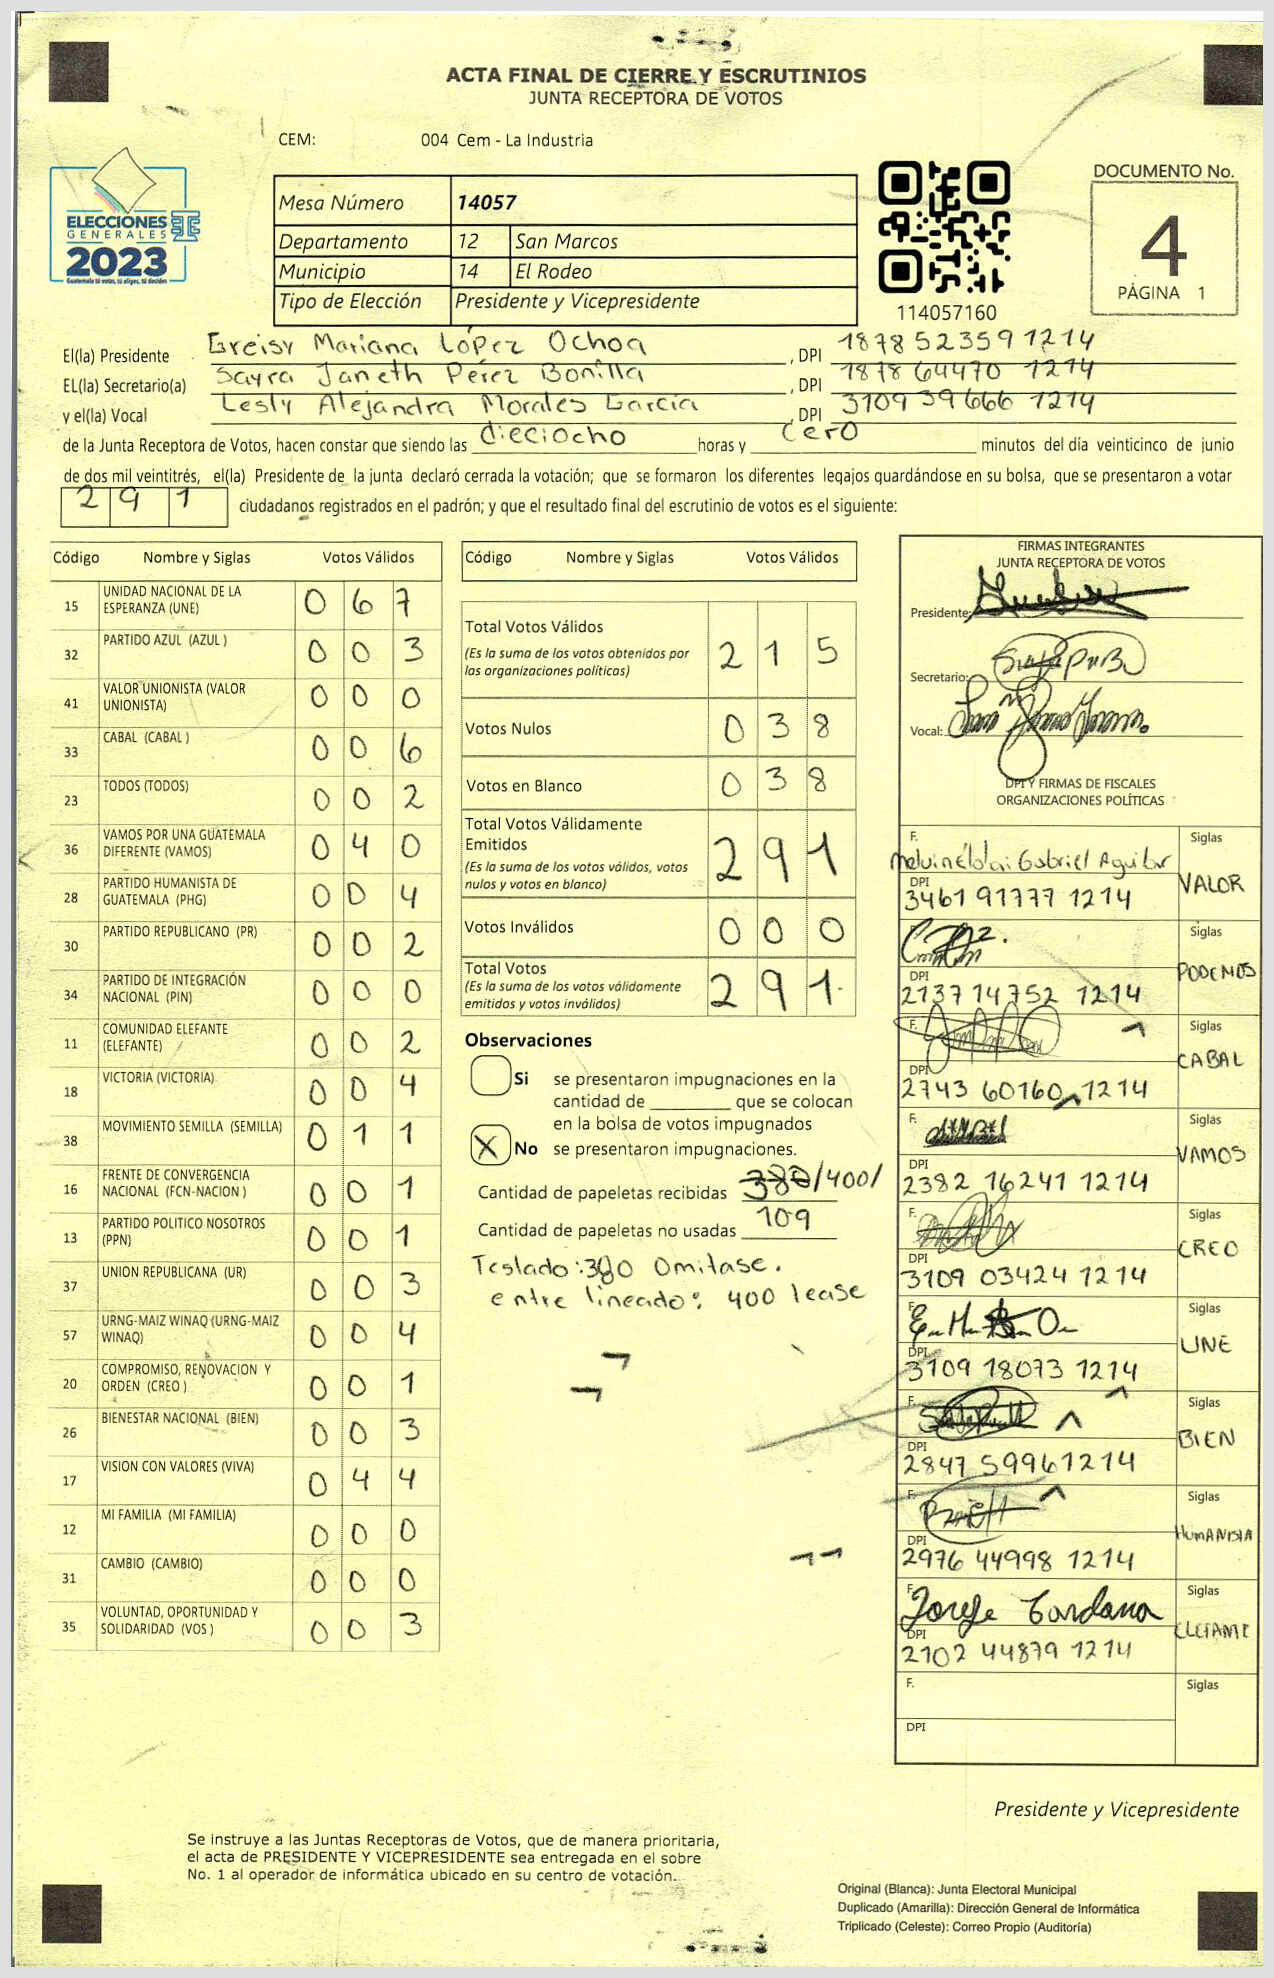 ACTA FINAL DE CIERRE Y ESCRUTINIOS
JUNTA RECEPTORA DE VOTOS
CEM: 004 Cem - La Industria
ELECCIONES
GENERALES
2023
Guatemala tú votas, tú eliges, tú decides
Mesa Número 14057
Departamento 12 San Marcos
Municipio 14 El Rodeo
Tipo de Elección Presidente y Vicepresidente
114057160
DOCUMENTO No.
4
PÁGINA 1
El(la) Presidente Greisy Mariana López Ochoa , DPI 1878 52359 1214
EL(la) Secretario(a) Sayra Janeth Pérez Bonilla , DPI 1878 64470 1214
y el(la) Vocal Lesly Alejandra Morales García , DPI 3109 39666 1214
de la Junta Receptora de Votos, hacen constar que siendo las dieciocho horas y cero minutos del día veinticinco de junio
de dos mil veintitrés, el(la) Presidente de la junta declaró cerrada la votación; que se formaron los diferentes legajos guardándose en su bolsa, que se presentaron a votar
291 ciudadanos registrados en el padrón; y que el resultado final del escrutinio de votos es el siguiente:
Código Nombre y Siglas Votos Válidos
15 UNIDAD NACIONAL DE LA ESPERANZA (UNE) 0 6 7
32 PARTIDO AZUL (AZUL ) 0 0 3
41 VALOR UNIONISTA (VALOR UNIONISTA) 0 0 0
33 CABAL (CABAL ) 0 0 6
23 TODOS (TODOS) 0 0 2
36 VAMOS POR UNA GUATEMALA DIFERENTE (VAMOS) 0 4 0
28 PARTIDO HUMANISTA DE GUATEMALA (PHG) 0 0 4
30 PARTIDO REPUBLICANO (PR) 0 0 2
34 PARTIDO DE INTEGRACIÓN NACIONAL (PIN) 0 0 0
11 COMUNIDAD ELEFANTE (ELEFANTE) 0 0 2
18 VICTORIA (VICTORIA) 0 0 4
38 MOVIMIENTO SEMILLA (SEMILLA) 0 1 1
16 FRENTE DE CONVERGENCIA NACIONAL (FCN-NACION ) 0 0 1
13 PARTIDO POLITICO NOSOTROS (PPN) 0 0 1
37 UNION REPUBLICANA (UR) 0 0 3
57 URNG-MAIZ WINAQ (URNG-MAIZ WINAQ) 0 0 4
20 COMPROMISO, RENOVACION Y ORDEN (CREO ) 0 0 1
26 BIENESTAR NACIONAL (BIEN) 0 0 3
17 VISION CON VALORES (VIVA) 0 4 4
12 MI FAMILIA (MI FAMILIA) 0 0 0
31 CAMBIO (CAMBIO) 0 0 0
35 VOLUNTAD, OPORTUNIDAD Y SOLIDARIDAD (VOS ) 0 0 3
Código Nombre y Siglas Votos Válidos
Total Votos Válidos 2 1 5
(Es la suma de los votos obtenidos por
las organizaciones políticas)
Votos Nulos 0 3 8
Votos en Blanco 0 3 8
Total Votos Válidamente
Emitidos 2 9 1
(Es la suma de los votos válidos, votos
nulos y votos en blanco)
Votos Inválidos 0 0 0
Total Votos 2 9 1
(Es la suma de los votos válidamente
emitidos y votos inválidos)
Observaciones
Si se presentaron impugnaciones en la
cantidad de ________ que se colocan
en la bolsa de votos impugnados
X No se presentaron impugnaciones.
Cantidad de papeletas recibidas 380/400/
Cantidad de papeletas no usadas 109
Testado: 380 Omitase.
entre lineado: 400 lease
FIRMAS INTEGRANTES
JUNTA RECEPTORA DE VOTOS
Presidente:
Secretario:
Vocal:
DPI Y FIRMAS DE FISCALES
ORGANIZACIONES POLÍTICAS
F. Gabriel Aguilar Siglas
DPI VALOR
3461 91777 1214
Siglas
DPI PODEMOS
2137 14752 1214
F. Siglas
DPI CABAL
2743 60160 1214
F. Siglas
DPI VAMOS
2382 16241 1214
F. Siglas
DPI CREO
3109 03424 1214
F. Siglas
DPI UNE
3109 18073 1214
F. Siglas
DPI BIEN
2847 59961214
F. Siglas
DPI HUMANISTA
2976 44998 1214
F. Jorge Cardona Siglas
DPI ELEFANTE
2102 44879 1214
F. Siglas
DPI
Presidente y Vicepresidente
Se instruye a las Juntas Receptoras de Votos, que de manera prioritaria,
el acta de PRESIDENTE Y VICEPRESIDENTE sea entregada en el sobre
No. 1 al operador de informática ubicado en su centro de votación.
Original (Blanca): Junta Electoral Municipal
Duplicado (Amarilla): Dirección General de Informática
Triplicado (Celeste): Correo Propio (Auditoría)